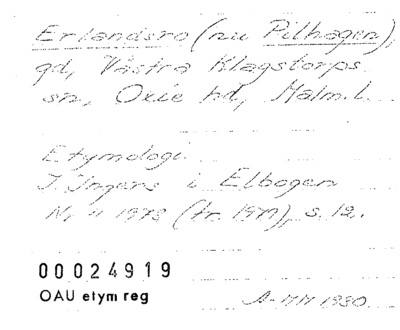 Erlandsro (nu Pilhagen),
gd, Västra Klagstorps
sn, Oxie hd, Malm.l.
Etymologi.
J. Ingers i Elbogen
Nr 4 1978 (tr. 1979), s. 12.
00024919
OAU etym reg
1980